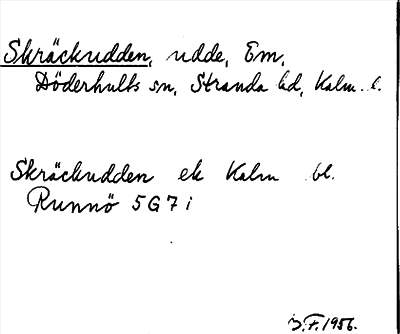 Skräckudden, udde, Em,
Döderhults sn, Stranda hd, Kalm. l.
Skräckudden ek Kalm bl.
Runnö 5G7i
F. 1956.